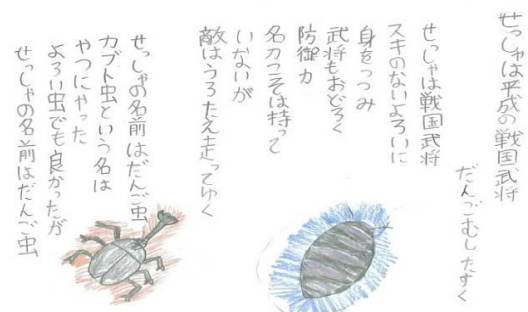 せっしゃは平成の戦国武将
だんごむしたすく
せっしゃは戦国武将
スキのないよろいに
身をつつみ
武将もおどろく
防御力
名刀こそは持って
いないが
敵はうろたえ走ってゆく
せっしゃの名前はだんご虫
カブト虫という名は
やつにやった
よろい虫でも良かったが
せっしゃの名前はだんご虫